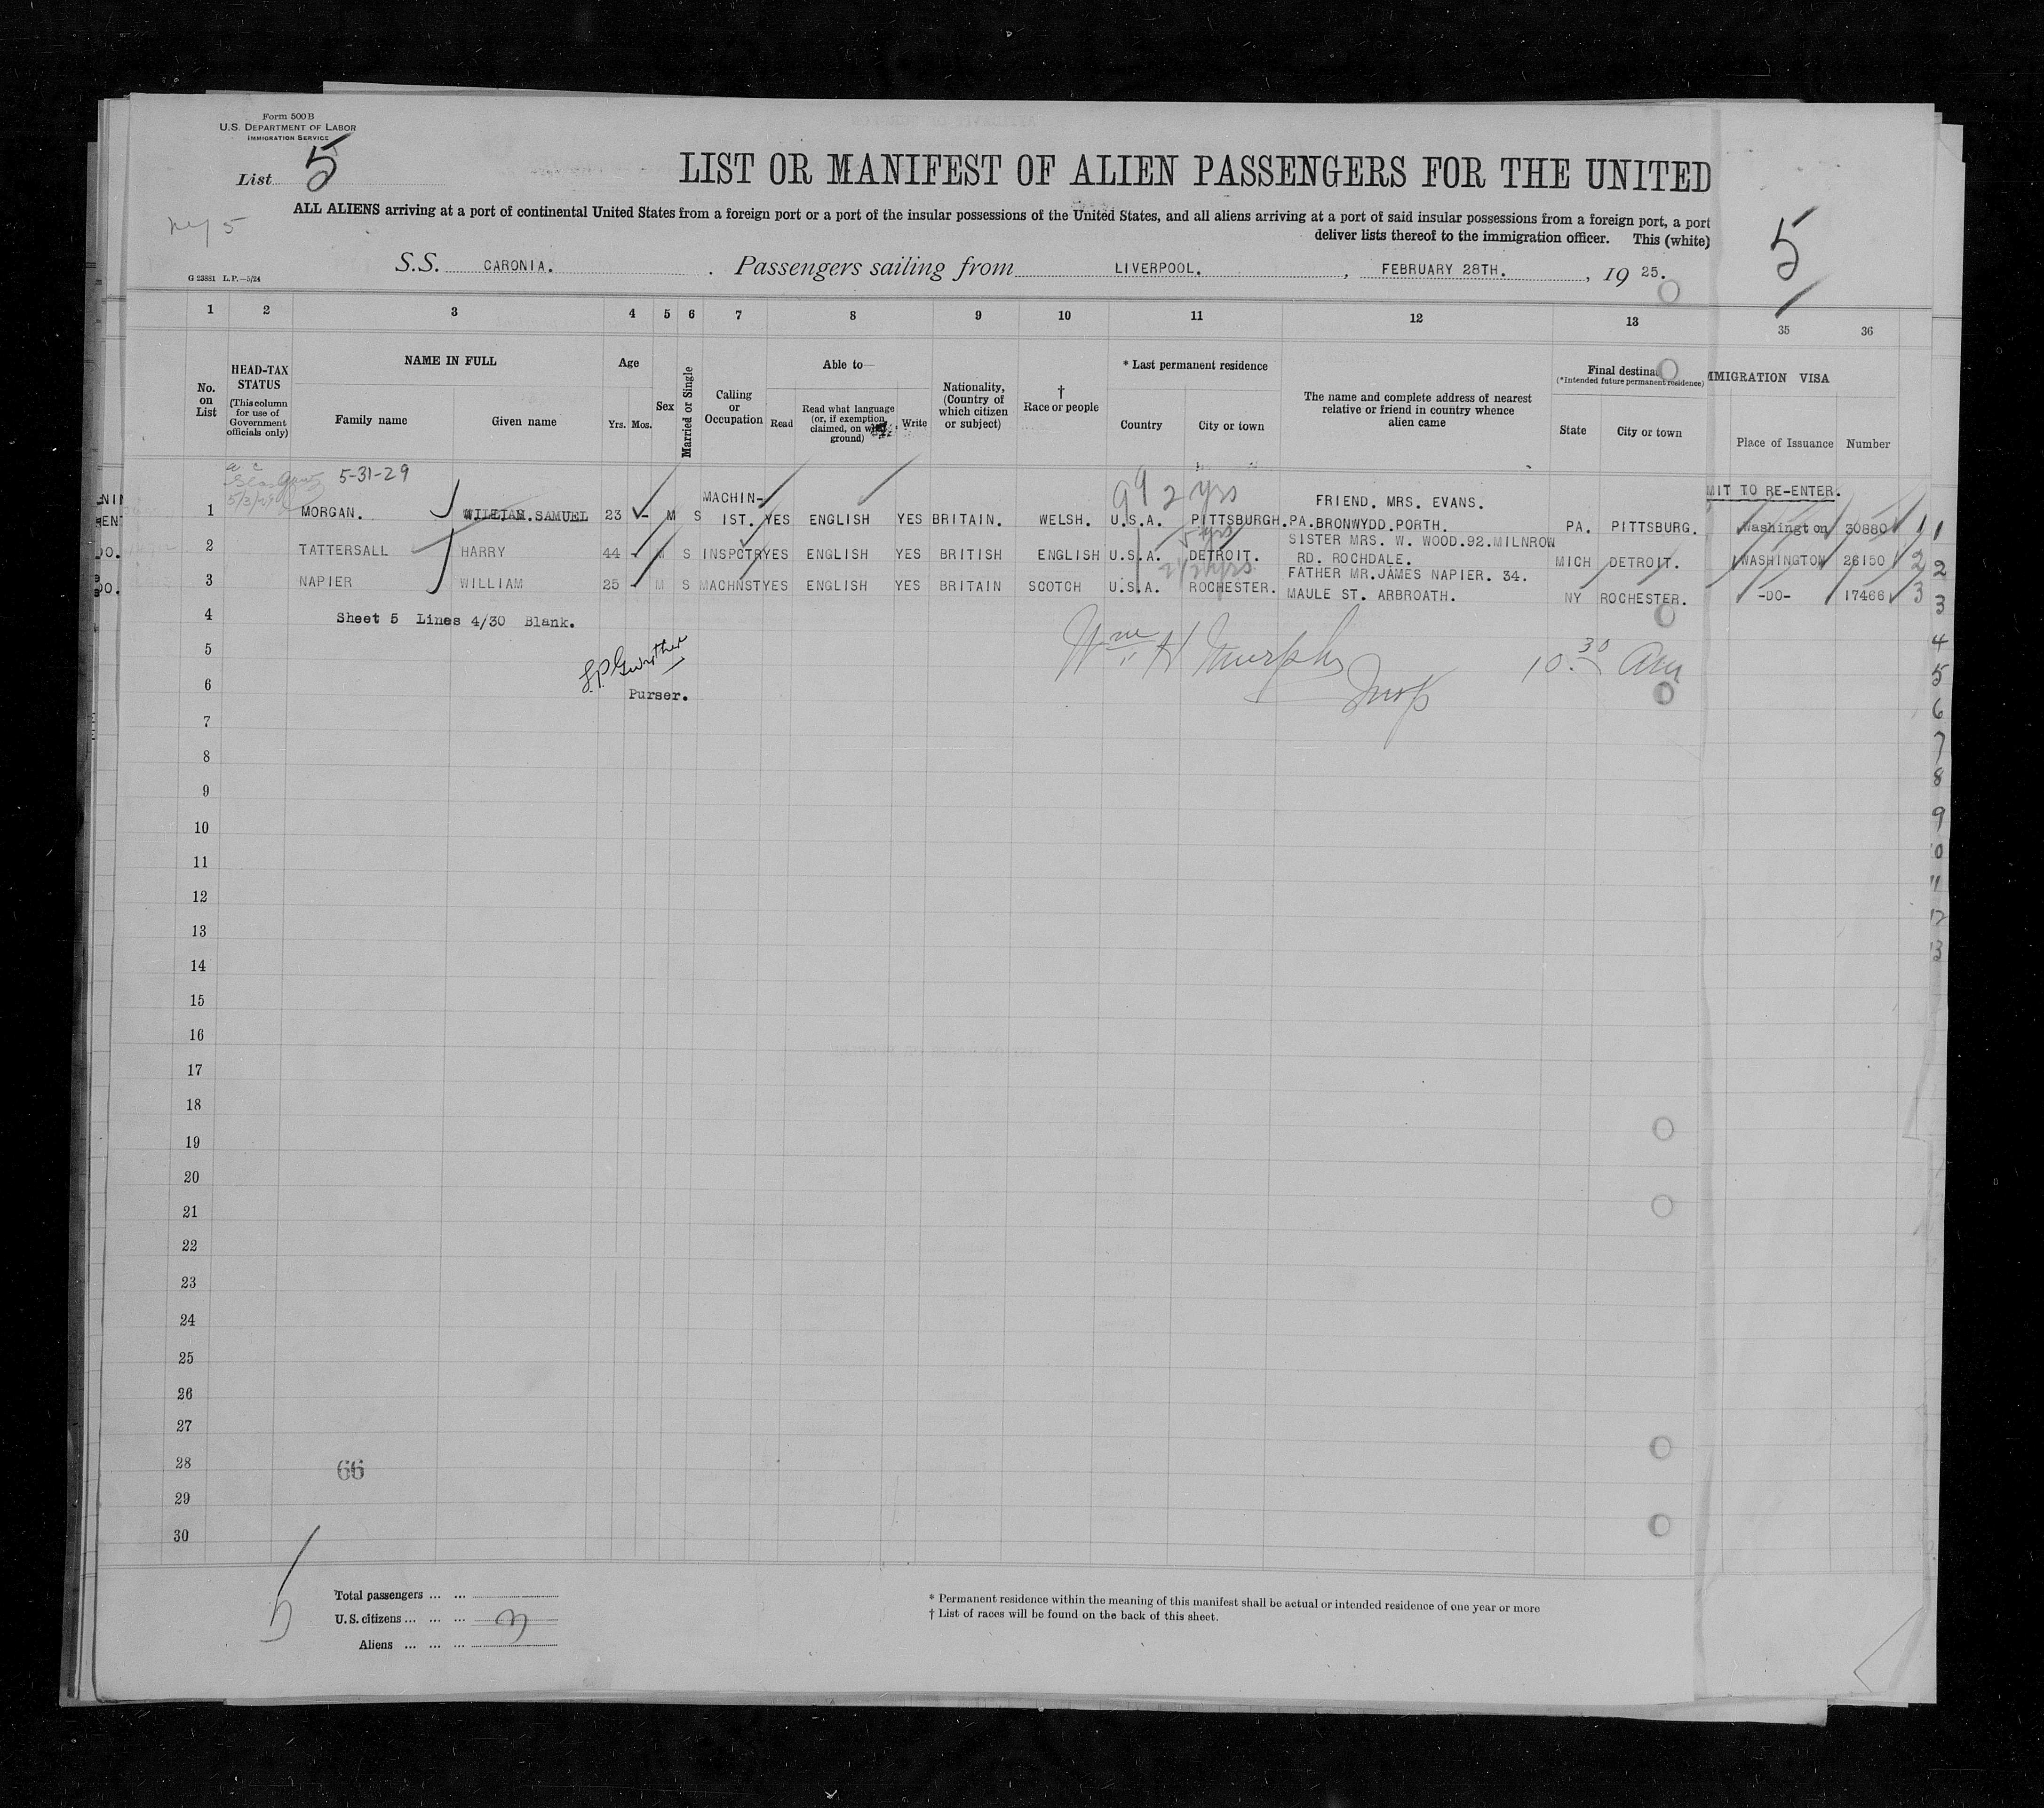 Form 500 B
U.S. DEPARTMENT OF LABOR
IMMIGRATION SERVICE
List 5
LIST OR MANIFEST OF ALIEN PASSENGERS FOR THE UNITED
ALL ALIENS arriving at a port of continental United States from a foreign port or a port of the insular possessions of the United States, and all aliens arriving at a port of said insular possessions from a foreign port, a port
deliver lists thereof to the immigration officer. This (white)
5
5
S.S. CARONIA. Passengers sailing from LIVERPOOL. , FEBRUARY 28TH. , 19 25.
G 23881 L.P.—5/24
1 2 3 4 5 6 7 8 9 10 11 12 13 35 36
No. on List
HEAD-TAX STATUS (This column for use of Government officials only)
NAME IN FULL
Family name Given name
Age
Yrs. Mos.
Sex
Married or Single
Calling or Occupation
Able to—
Read
Read what language (or, if exemption claimed, on what ground)
Write
Nationality, (Country of which citizen or subject)
† Race or people
* Last permanent residence
Country City or town
The name and complete address of nearest relative or friend in country whence alien came
Final destina
(*Intended future permanent residence)
State City or town
MMIGRATION VISA
Place of Issuance Number
5-31-29
MIT TO RE-ENTER.
2 yrs
1 MORGAN. WILLIAM.SAMUEL 23 - M S MACHIN-IST. YES ENGLISH YES BRITAIN. WELSH. U.S.A. PITTSBURGH.PA. FRIEND. MRS. EVANS. BRONWYDD.PORTH. PA. PITTSBURG. Washington 30880 1 1
5 yrs
2 TATTERSALL HARRY 44 - M S INSPCTR YES ENGLISH YES BRITISH ENGLISH U.S.A. DETROIT. SISTER MRS. W. WOOD.92.MILNROW RD. ROCHDALE. MICH DETROIT. WASHINGTON 26150 2 2
2 1/2 yrs
3 NAPIER WILLIAM 25 - M S MACHNST YES ENGLISH YES BRITAIN SCOTCH U.S.A. ROCHESTER. FATHER MR.JAMES NAPIER. 34. MAULE ST. ARBROATH. NY ROCHESTER. -DO- 17466 3 3
4 Sheet 5 Lines 4/30 Blank. 4
5 Wm H Murphy 10.30 Am 5
6 Purser. Insp 6
7 7
8 8
9 9
10 10
11 11
12 12
13 13
14
15
16
17
18
19
20
21
22
23
24
25
26
27
28 66
29
30
Total passengers ... ...
U.S. citizens ... ... ... 3
Aliens ... ... ...
* Permanent residence within the meaning of this manifest shall be actual or intended residence of one year or more
† List of races will be found on the back of this sheet.